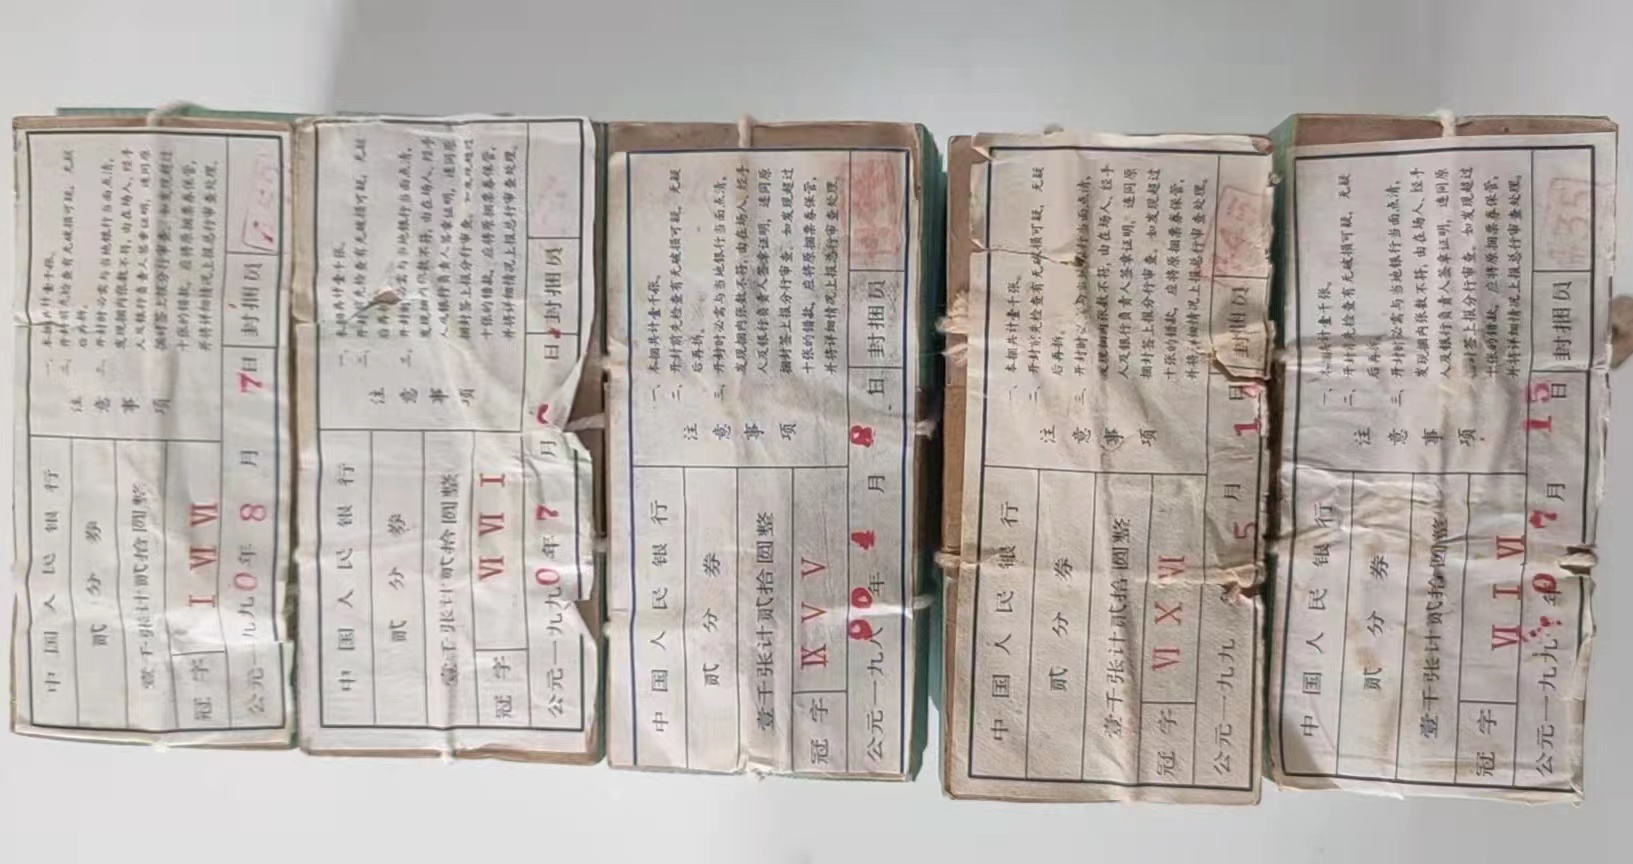 中国人民银行
贰分券
壹千张计贰拾圆整
冠字 I VI VI
公元一九九0年8月7日
封捆员
注意事项
一、本捆共计壹千张。
二、开封前先检查有无破损可疑，无疑后再拆。
三、开封时必需与当地银行当面点清，发现捆内张数不符，由在场人、经手人及银行负责人签章证明，连同原捆封签上报分行审查。如发现超过十张的错款，应将原捆票券保管，并将详细情况上报总行审查处理。
中国人民银行
贰分券
壹千张计贰拾圆整
冠字 VI VI I
公元一九九0年7月
日
封捆员
注意事项
一、本捆共计壹千张。
二、开封前先检查有无破损可疑，无疑后再拆。
三、开封时必需与当地银行当面点清，发现捆内张数不符，由在场人、经手人及银行负责人签章证明，连同原捆封签上报分行审查。如发现超过十张的错款，应将原捆票券保管，并将详细情况上报总行审查处理。
中国人民银行
贰分券
壹千张计贰拾圆整
冠字 IX V V
公元一九八
90年4月8日
封捆员
注意事项
一、本捆共计壹千张。
二、开封前先检查有无破损可疑，无疑后再拆。
三、开封时必需与当地银行当面点清，发现捆内张数不符，由在场人、经手人及银行负责人签章证明，连同原捆封签上报分行审查。如发现超过十张的错款，应将原捆票券保管，并将详细情况上报总行审查处理。
中国人民银行
贰分券
壹千张计贰拾圆整
冠字 VI X VI
公元一九九
5月
日
封捆员
注意事项
一、本捆共计壹千张。
二、开封前先检查有无破损可疑，无疑后再拆。
三、开封时必需与当地银行当面点清，发现捆内张数不符，由在场人、经手人及银行负责人签章证明，连同原捆封签上报分行审查。如发现超过十张的错款，应将原捆票券保管，并将详细情况上报总行审查处理。
中国人民银行
贰分券
壹千张计贰拾圆整
冠字 VI I VI
公元一九九0年7月15日
封捆员
35
注意事项
一、本捆共计壹千张。
二、开封前先检查有无破损可疑，无疑后再拆。
三、开封时必需与当地银行当面点清，发现捆内张数不符，由在场人、经手人及银行负责人签章证明，连同原捆封签上报分行审查。如发现超过十张的错款，应将原捆票券保管，并将详细情况上报总行审查处理。